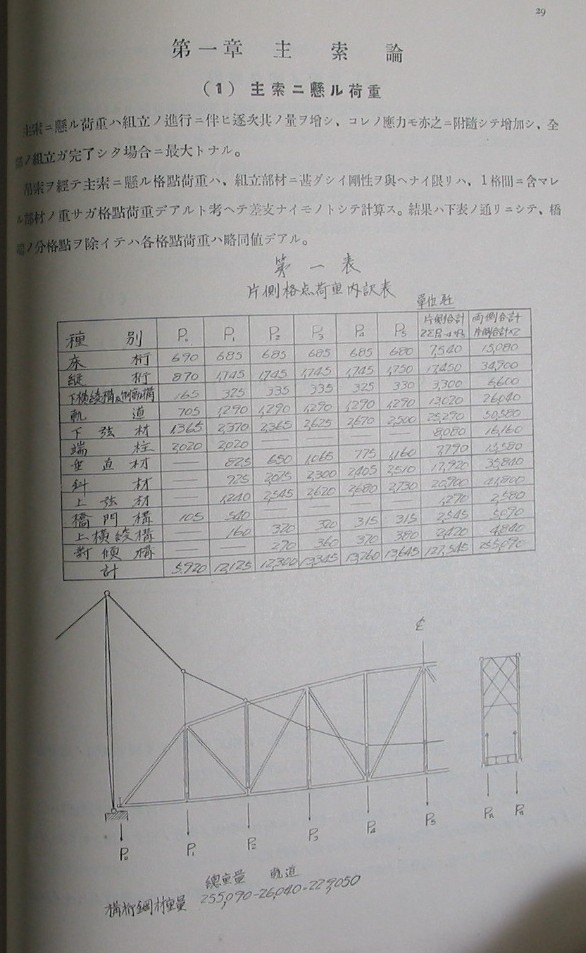 29
第一章 主索論
(1) 主索ニ懸ル荷重
主索ニ懸ル荷重ハ組立ノ進行ニ伴ヒ逐次其ノ量ヲ增シ、コレノ應力モ亦之ニ附隨シテ增加シ、全
ノ組立ガ完了シタ場合ニ最大トナル。
吊索ヲ經テ主索ニ懸ル格點荷重ハ、組立部材ニ甚ダシイ剛性ヲ與ヘナイ限リハ、1格間ニ含マレ
ル部材ノ重サガ格點荷重デアルト考ヘテ差支ナイモノトシテ計算ス。結果ハ下表ノ通リニシテ、橋
ノ分格點ヲ除イテハ各格點荷重ハ略同値デアル。
第一表
片側格点荷重内訳表
單位瓩
種別 P₀ P₁ P₂ P₃ P₄ P₅ 片側合計 両側合計
床桁 690 685 685 685 685 680 7,540 15,080
縦桁 870 1,745 1,745 1,745 1,745 1,750 17,450 34,900
165 325 335 335 325 330 3,300 6,600
軌道 705 1,290 1,290 1,290 1,290 1,290 13,020 26,040
下弦材 1,365 2,370 2,365 2,625 2,670 2,500 25,290 50,580
端柱 2,020 2,020 — — — — 8,080 16,160
垂直材 — 825 650 1,065 775 1,160 7,790 15,580
斜材 — 925 2,075 2,300 2,405 2,510 17,920 35,840
上弦材 — 1,240 2,545 2,620 2,680 2,730 20,900 41,800
橋門構 105 540 — — — — 1,290 2,580
上横綾構 — 160 320 320 315 315 2,545 5,090
對傾構 — — 290 360 370 380 2,420 4,840
計 5,920 12,125 12,300 13,345 13,260 13,645 127,545 255,090
℄
P₀ P₁ P₂ P₃ P₄ P₅
總重量 軌道
構桁鋼材重量 255,090-26,040=229,050